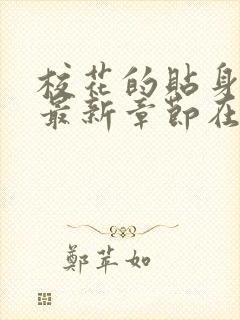 校花的貼身
最新章節在
鄭苹如